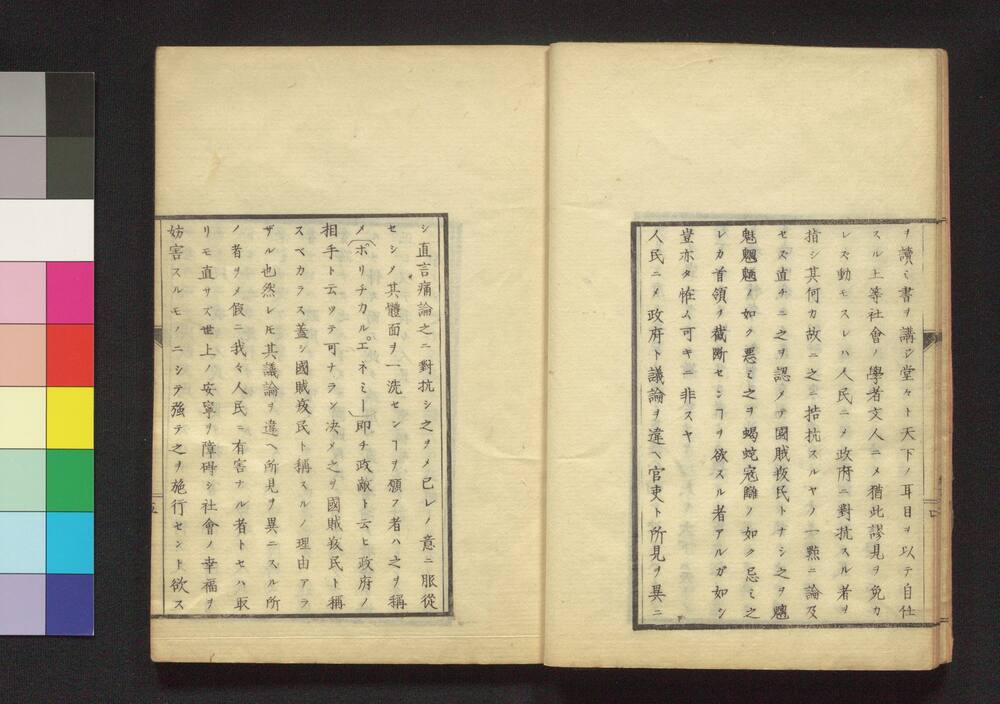 ヲ讀ミ書ヲ講ジ堂々ト天下ノ耳目ヲ以テ自任
スル上等社會ノ學者文人ニメ猶此謬見ヲ免カ
レズ動モスレハ人民ニメ政府ニ對抗スル者ヲ
指シ其何カ故ニ之ニ拮抗スルヤノ一㸃ニ論及
セズ直チニ之ヲ認メテ國賊叛民トナシ之ヲ魑
魅魍魎ノ如ク悪ミ之ヲ蝎蛇冦讎ノ如ク忌ミ之
レカ首領ヲ截断センヿヲ欲スル者アルガ如シ
豈亦タ恠ム可キニ非スヤ
人民ニメ政府ト議論ヲ違ヘ官吏ト所見ヲ異ニ
シ直言痛論之ニ對抗シ之ヲメ已レノ意ニ服從
セシノ其體面ヲ一洗センヿヲ願フ者ハ之ヲ稱
メ(ポリチカルエ。ネミー)即チ政敵ト云ヒ政府ノ
相手ト云ツテ可ナラン决メ之ヲ國賊叛民ト稱
スベカラス蓋シ國賊叛民ト稱スルノ理由アラ
ザル也然レ𪜈其議論ヲ違ヘ所見ヲ異ニスル所
ノ者ヲメ假ニ我々人民ニ有害ナル者トセハ取
リモ直サズ世上ノ安寧ヲ障碍シ社會ノ幸福ヲ
妨害スルモノニシテ強テ之ヲ施行セント欲ス